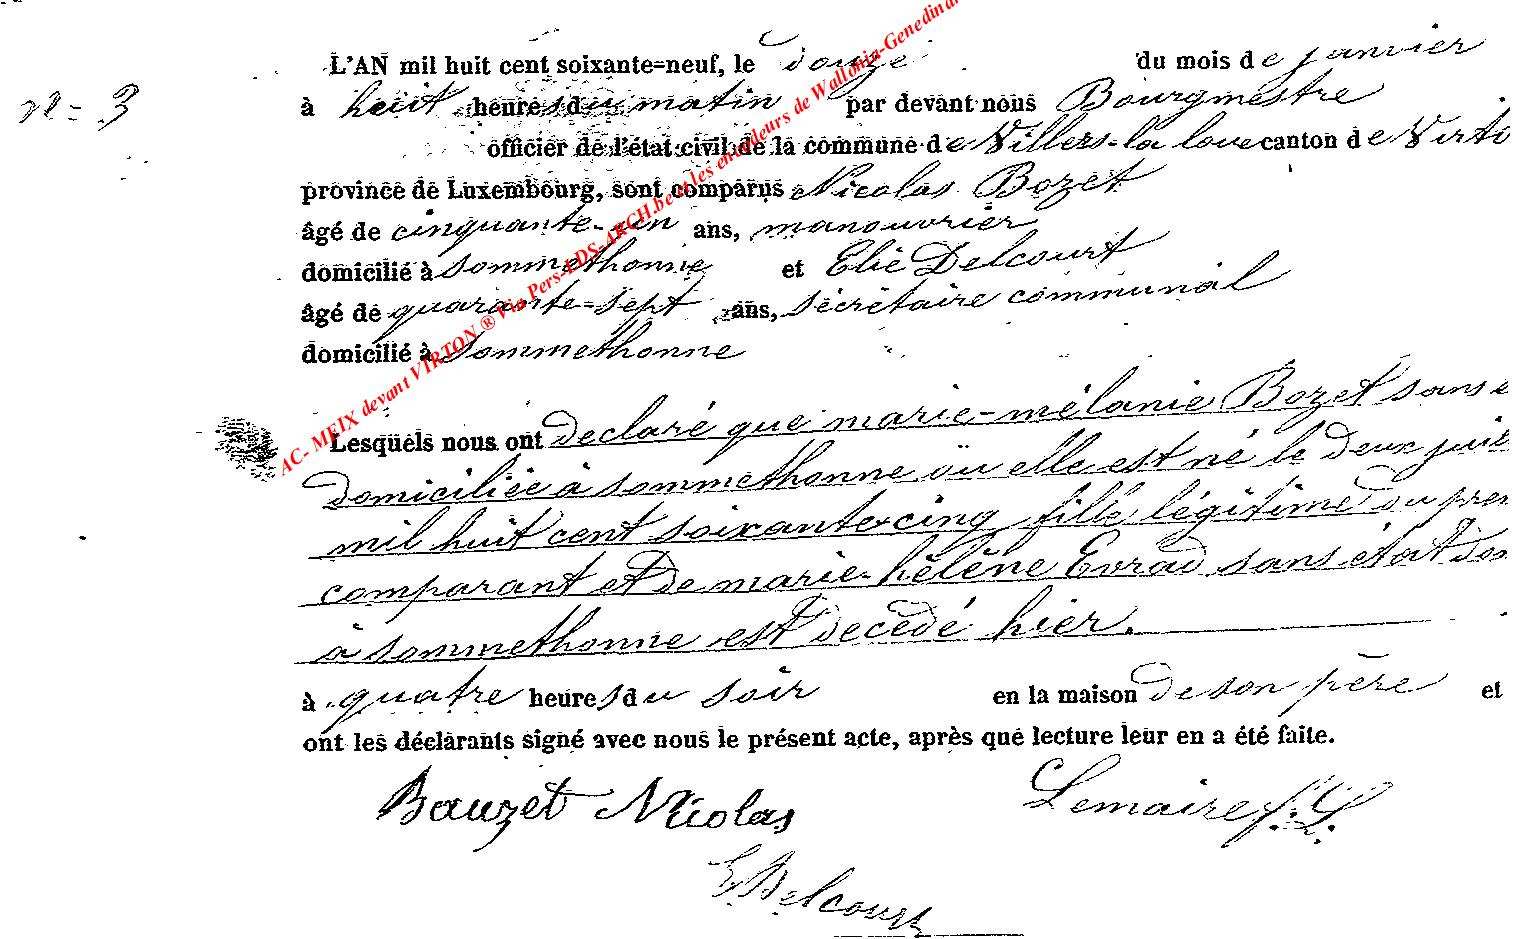 L'AN mil huit cent soixante=neuf, le douze du mois de janvier
n=3
à huit heures du matin par devant nous Bourgmestre
officier de l'état civil de la commune de Villers-la loue canton de Virto
province de Luxembourg, sont comparus Nicolas Bozet
âgé de cinquante-un ans, manouvrier
domicilié à Sommethonne et Elie Delcourt
âgé de quarante=sept ans, sécrétaire communal
domicilié à Sommethonne
Lesquels nous ont declaré que marie-mélanie Bozet sans
domiciliée à sommethonne où elle est né le deux jui
mil huit cent soixante-cinq fille légitime du prem
comparant et de marie-hélène Evrad sans état dom
à sommethonne est decédé hier.
à quatre heures du soir en la maison de son père et
ont les déclarants signé avec nous le présent acte, après que lecture leur en a été faite.
Bauzet Nicolas
Lemaire f. L.
E. Delcourt
AC- MEIX devant VIRTON ® Via Pers-LDS-ARCH.be et les encodeurs de Wallonia-Genedinar